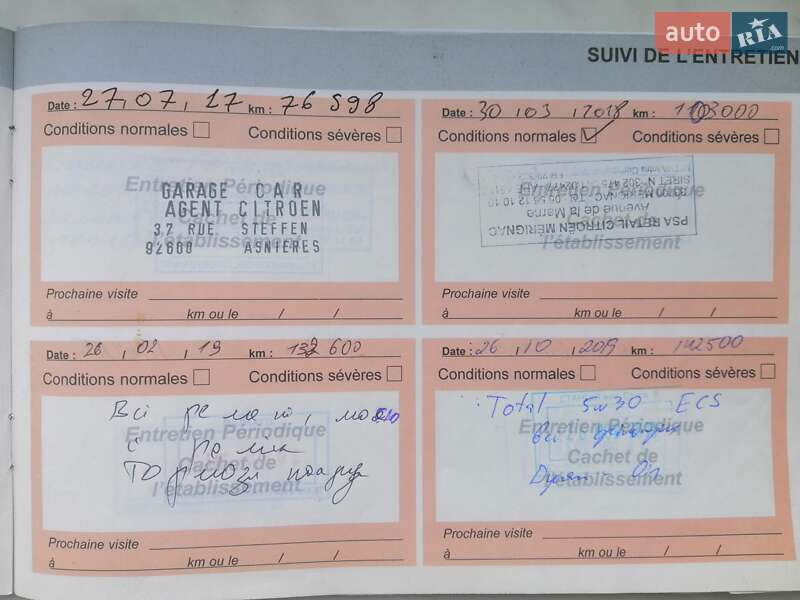 auto RIA.com
SUIVI DE L'ENTRETIEN
Date : 27, 07, 17 km : 76 598
Conditions normales Conditions sévères
Entretien Périodique
GARAGE CAR
AGENT CITROEN
37 RUE STEFFEN
92600 ASNIÈRES
Cachet de
l'établissement
Prochaine visite
à km ou le / /
Date : 30, 03, 2018 km : 103000
Conditions normales Conditions sévères
Entretien Périodique
PSA RETAIL CITROËN MÉRIGNAC
Avenue de la Marne
Cachet de
l'établissement
Prochaine visite
à km ou le / /
Date : 26, 02, 19 km : 132 600
Conditions normales Conditions sévères
Всі ремені, масло
Entretien Périodique
Cachet de
l'établissement
Prochaine visite
à km ou le / /
Date : 26, 10, 2019 km : 142500
Conditions normales Conditions sévères
Total 5w30 ECS
Entretien Périodique
Всі фільтри
Cachet de
l'établissement
Prochaine visite
à km ou le / /